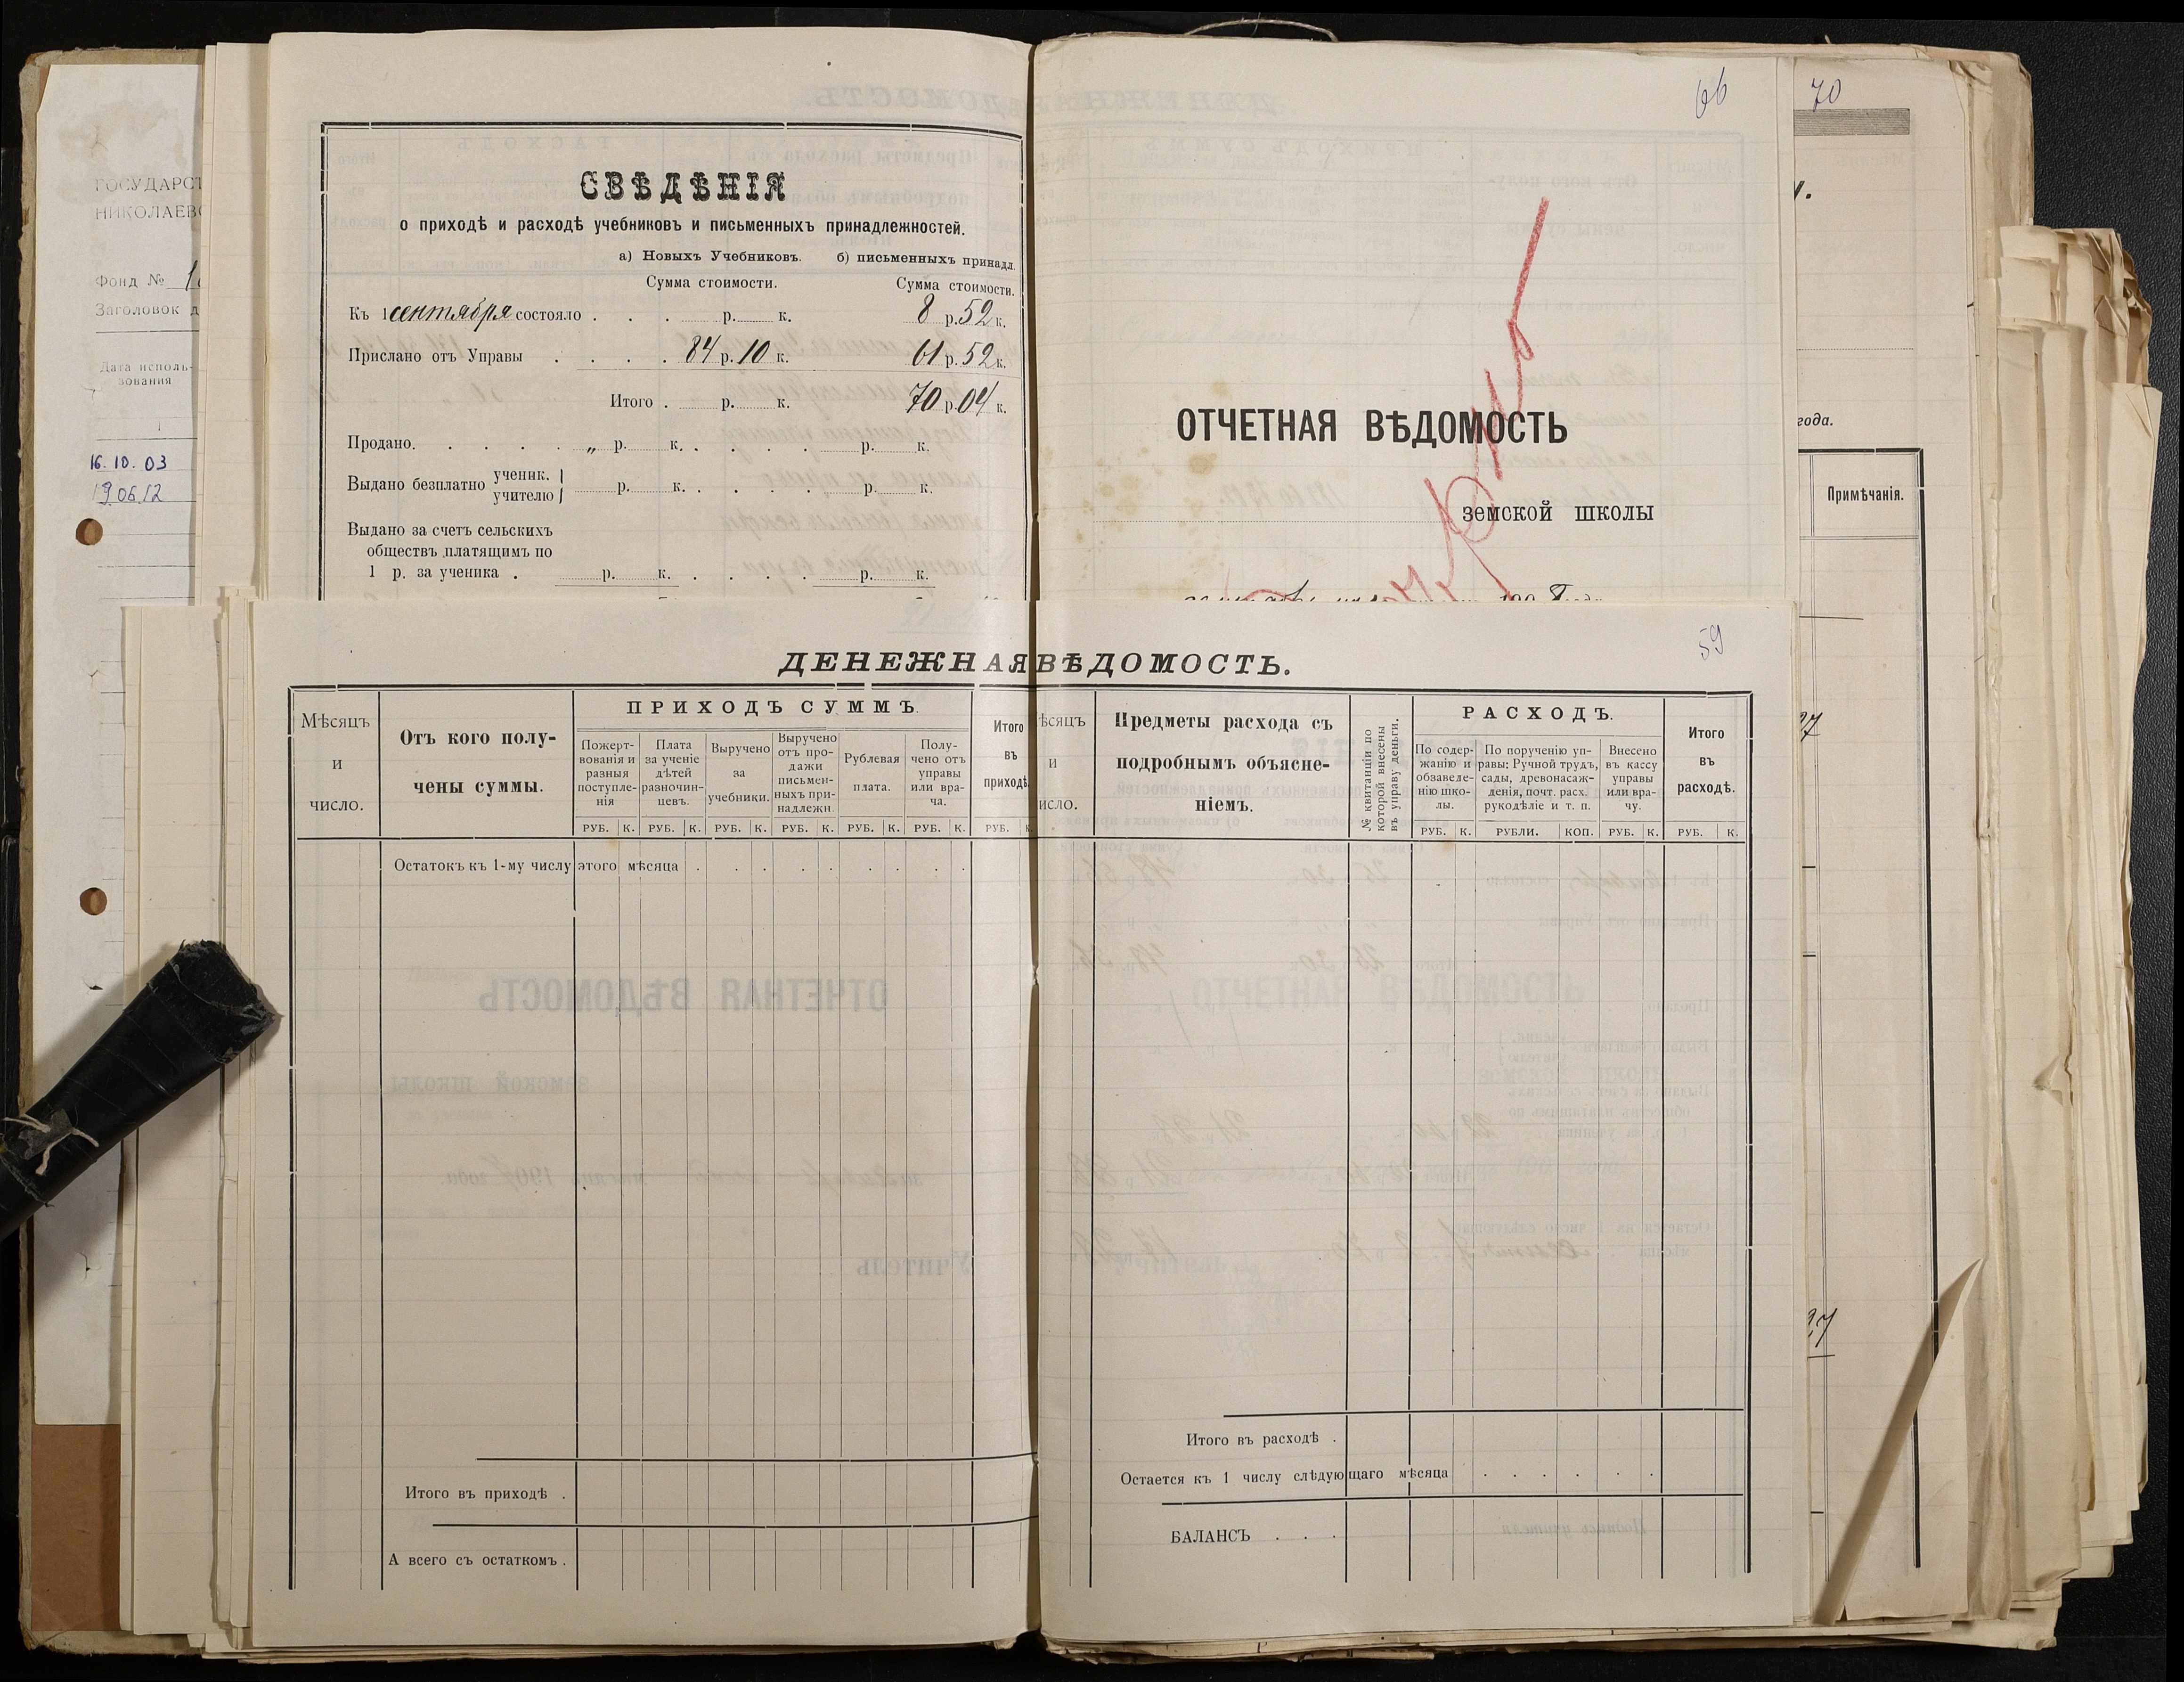 ГОСУДАРСТ
НИКОЛАЕВС
Фонд №
Заголовок д
Дата исполь-
зования
16. 10. 03
19 06 12
СВѢДѢНІЯ
о приходѣ и расходѣ учебниковъ и письменныхъ принадлежностей.
а) Новыхъ Учебниковъ. б) письменныхъ принадл.
Сумма стоимости. Сумма стоимости.
Къ 1 сентября состояло . . . р. к. 8 р. 52 к.
Прислано отъ Управы . . . . 84 р. 10 к. 61 р. 52 к.
Итого . р. к. 70 р. 04 к.
Продано. . . . . „ р. к. . . . . р. к.
Выдано безплатно ученик. р. к. . . . . р. к.
учителю
Выдано за счетъ сельскихъ
обществъ платящимъ по
1 р. за ученика . р. к. . . . . р. к.
66
ОТЧЕТНАЯ ВѢДОМОСТЬ
земской школы
70
года.
Примѣчанія.
59
ДЕНЕЖНАЯ ВѢДОМОСТЬ.
Мѣсяцъ
и
число.
Отъ кого полу-
чены суммы.
ПРИХОДЪ СУММЪ.
Пожерт-
вованія и
разныя
поступле-
нія
Плата
за ученіе
дѣтей
разночин-
цевъ.
Выручено
за
учебники.
Выручено
отъ про-
дажи
письмен-
ныхъ при-
надлежн.
Рублевая
плата.
Полу-
чено отъ
управы
или вра-
ча.
Итого
въ
приходѣ.
РУБ. К. РУБ. К. РУБ. К. РУБ. К. РУБ. К. РУБ. К. РУБ. К.
Остатокъ къ 1-му числу этого мѣсяца . . . . . . . . .
Итого въ приходѣ .
А всего съ остаткомъ .
ѣсяцъ
и
исло.
Предметы расхода съ
подробнымъ объясне-
ніемъ.
№ квитанціи по
которой внесены
въ управу деньги.
РАСХОДЪ.
По содер-
жанію и
обзаведе-
нію шко-
лы.
По порученію уп-
равы: Ручной трудъ,
сады, древонасаж-
денія, почт. расх.
рукодѣліе и т. п.
Внесено
въ кассу
управы
или вра-
чу.
Итого
въ
расходѣ.
РУБ. К. РУБЛИ. КОП. РУБ. К. РУБ. К.
Итого въ расходѣ .
Остается къ 1 числу слѣдующаго мѣсяца . . . . . .
БАЛАНСЪ . . .